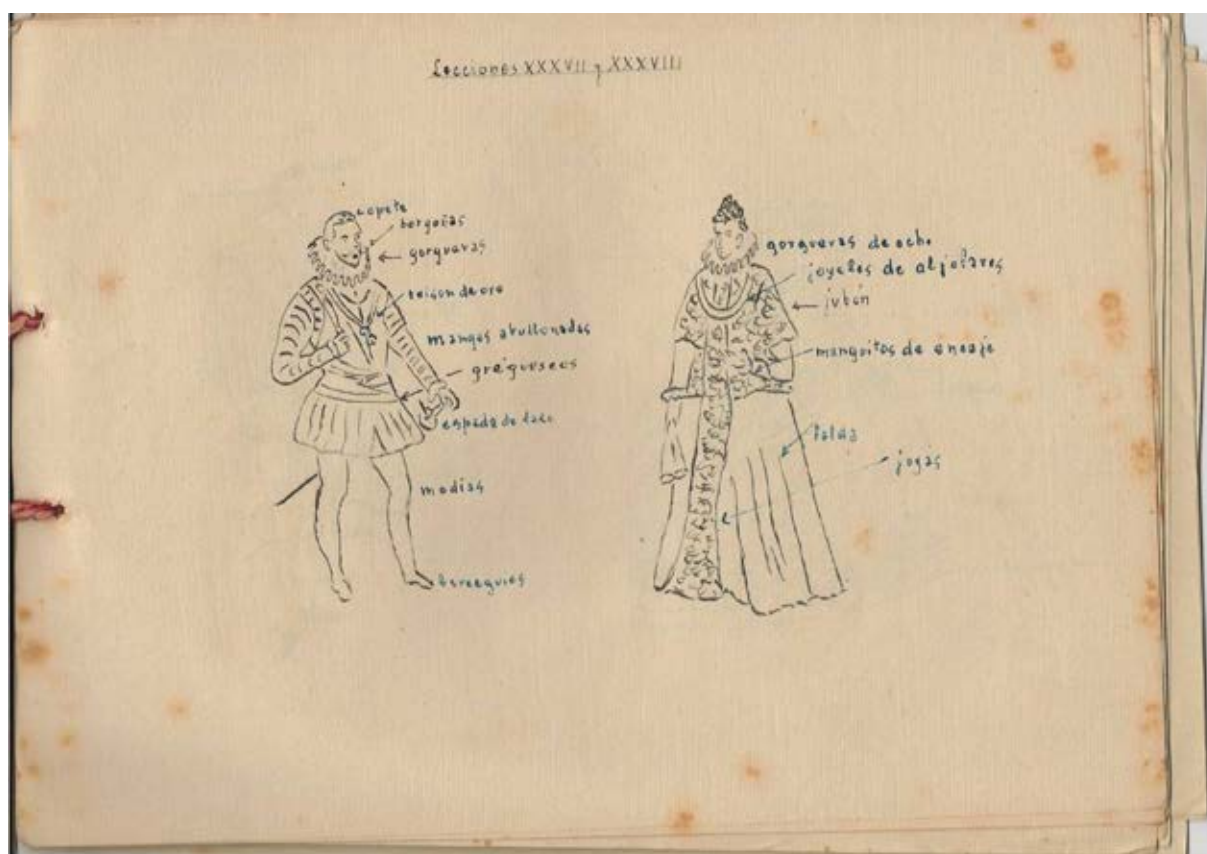 Lecciones XXXVII y XXXVIII
copete
borgoñas
gorgueras
toison de oro
mangas abullonadas
greguescos
espada de lazo
medias
borceguies
gorgueras de ocho
joyeles de aljofares
jubón
manguitos de encaje
falda
joyas